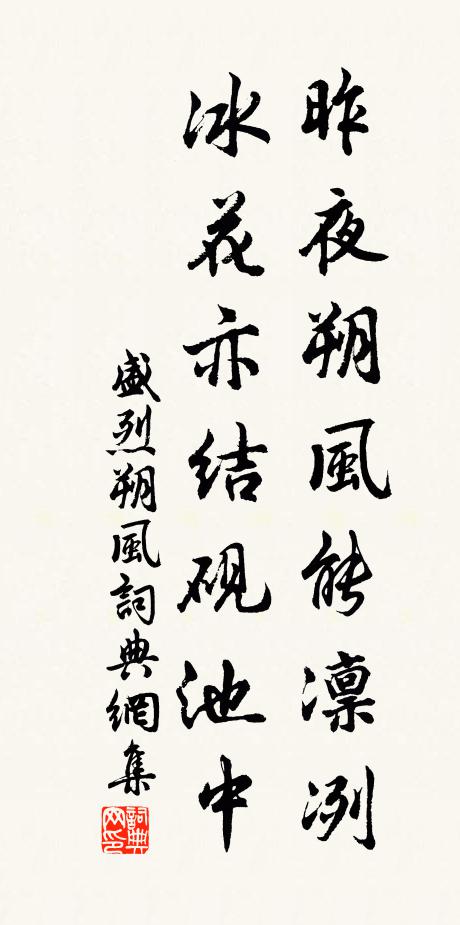 昨夜朔風能凜冽
冰花亦結硯池中
盛烈朔風詞典網集
詞典网印